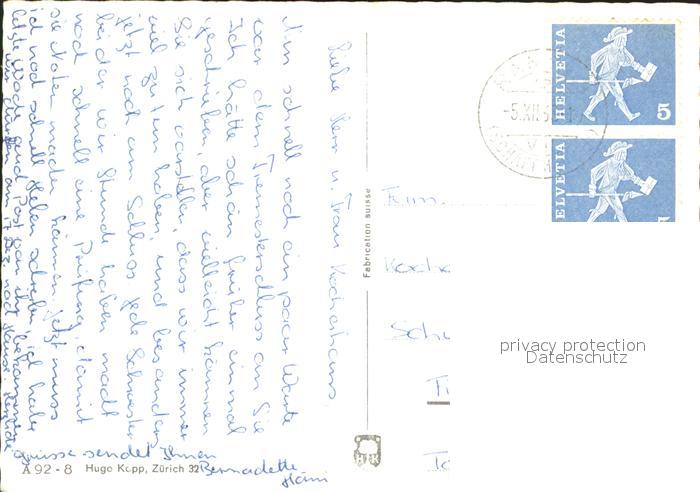 Liebe Herr u. Frau Kocherhans
Nun schnell noch ein paar Worte
vor dem Trimesterschluss an Sie
Ich hätte schon früher einmal
geschrieben, aber vielleicht können
Sie sich vorstellen, dass wir immer
viel zu tun haben, und besonders
jetzt noch am Schluss. Jede Schwester
bei der wir Stunde haben macht
noch schnell eine Prüfung, damit
sie Noten machen können. Jetzt muss
ich noch schnell schreiben, ich habe
letzte Woche Post von ihr bekommen
wir dürfen am 17 Dez. nach Hause. Herzliche
Grüsse sendet Ihnen
Bernadette
A 92 - 8 Hugo Kopp, Zürich 32
Fabrication suisse
HK
HELVETIA
5
HELVETIA
5
-5.XII.
Fam.
Koche
Schu
privacy protection
Datenschutz